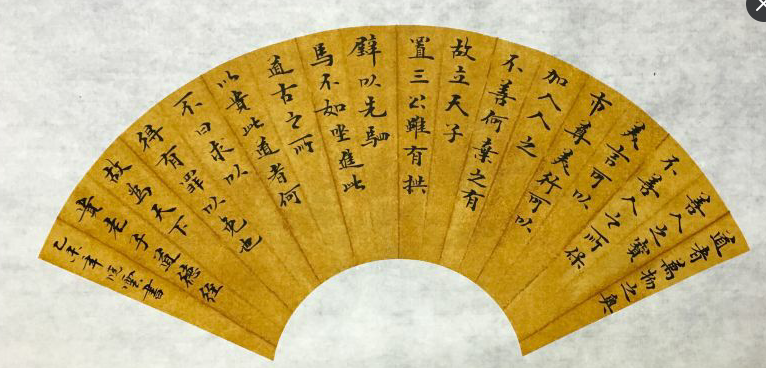 道者萬物之奧
善人之寶
不善人之所保
美言可以
市尊美行可以
加人人之
不善何棄之有
故立天子
置三公雖有拱
璧以先駟
馬不如坐進此
道古之所
以貴此道者何
不曰求以
得有罪以免也
故為天下
貴老子道德經
乙未年雲書